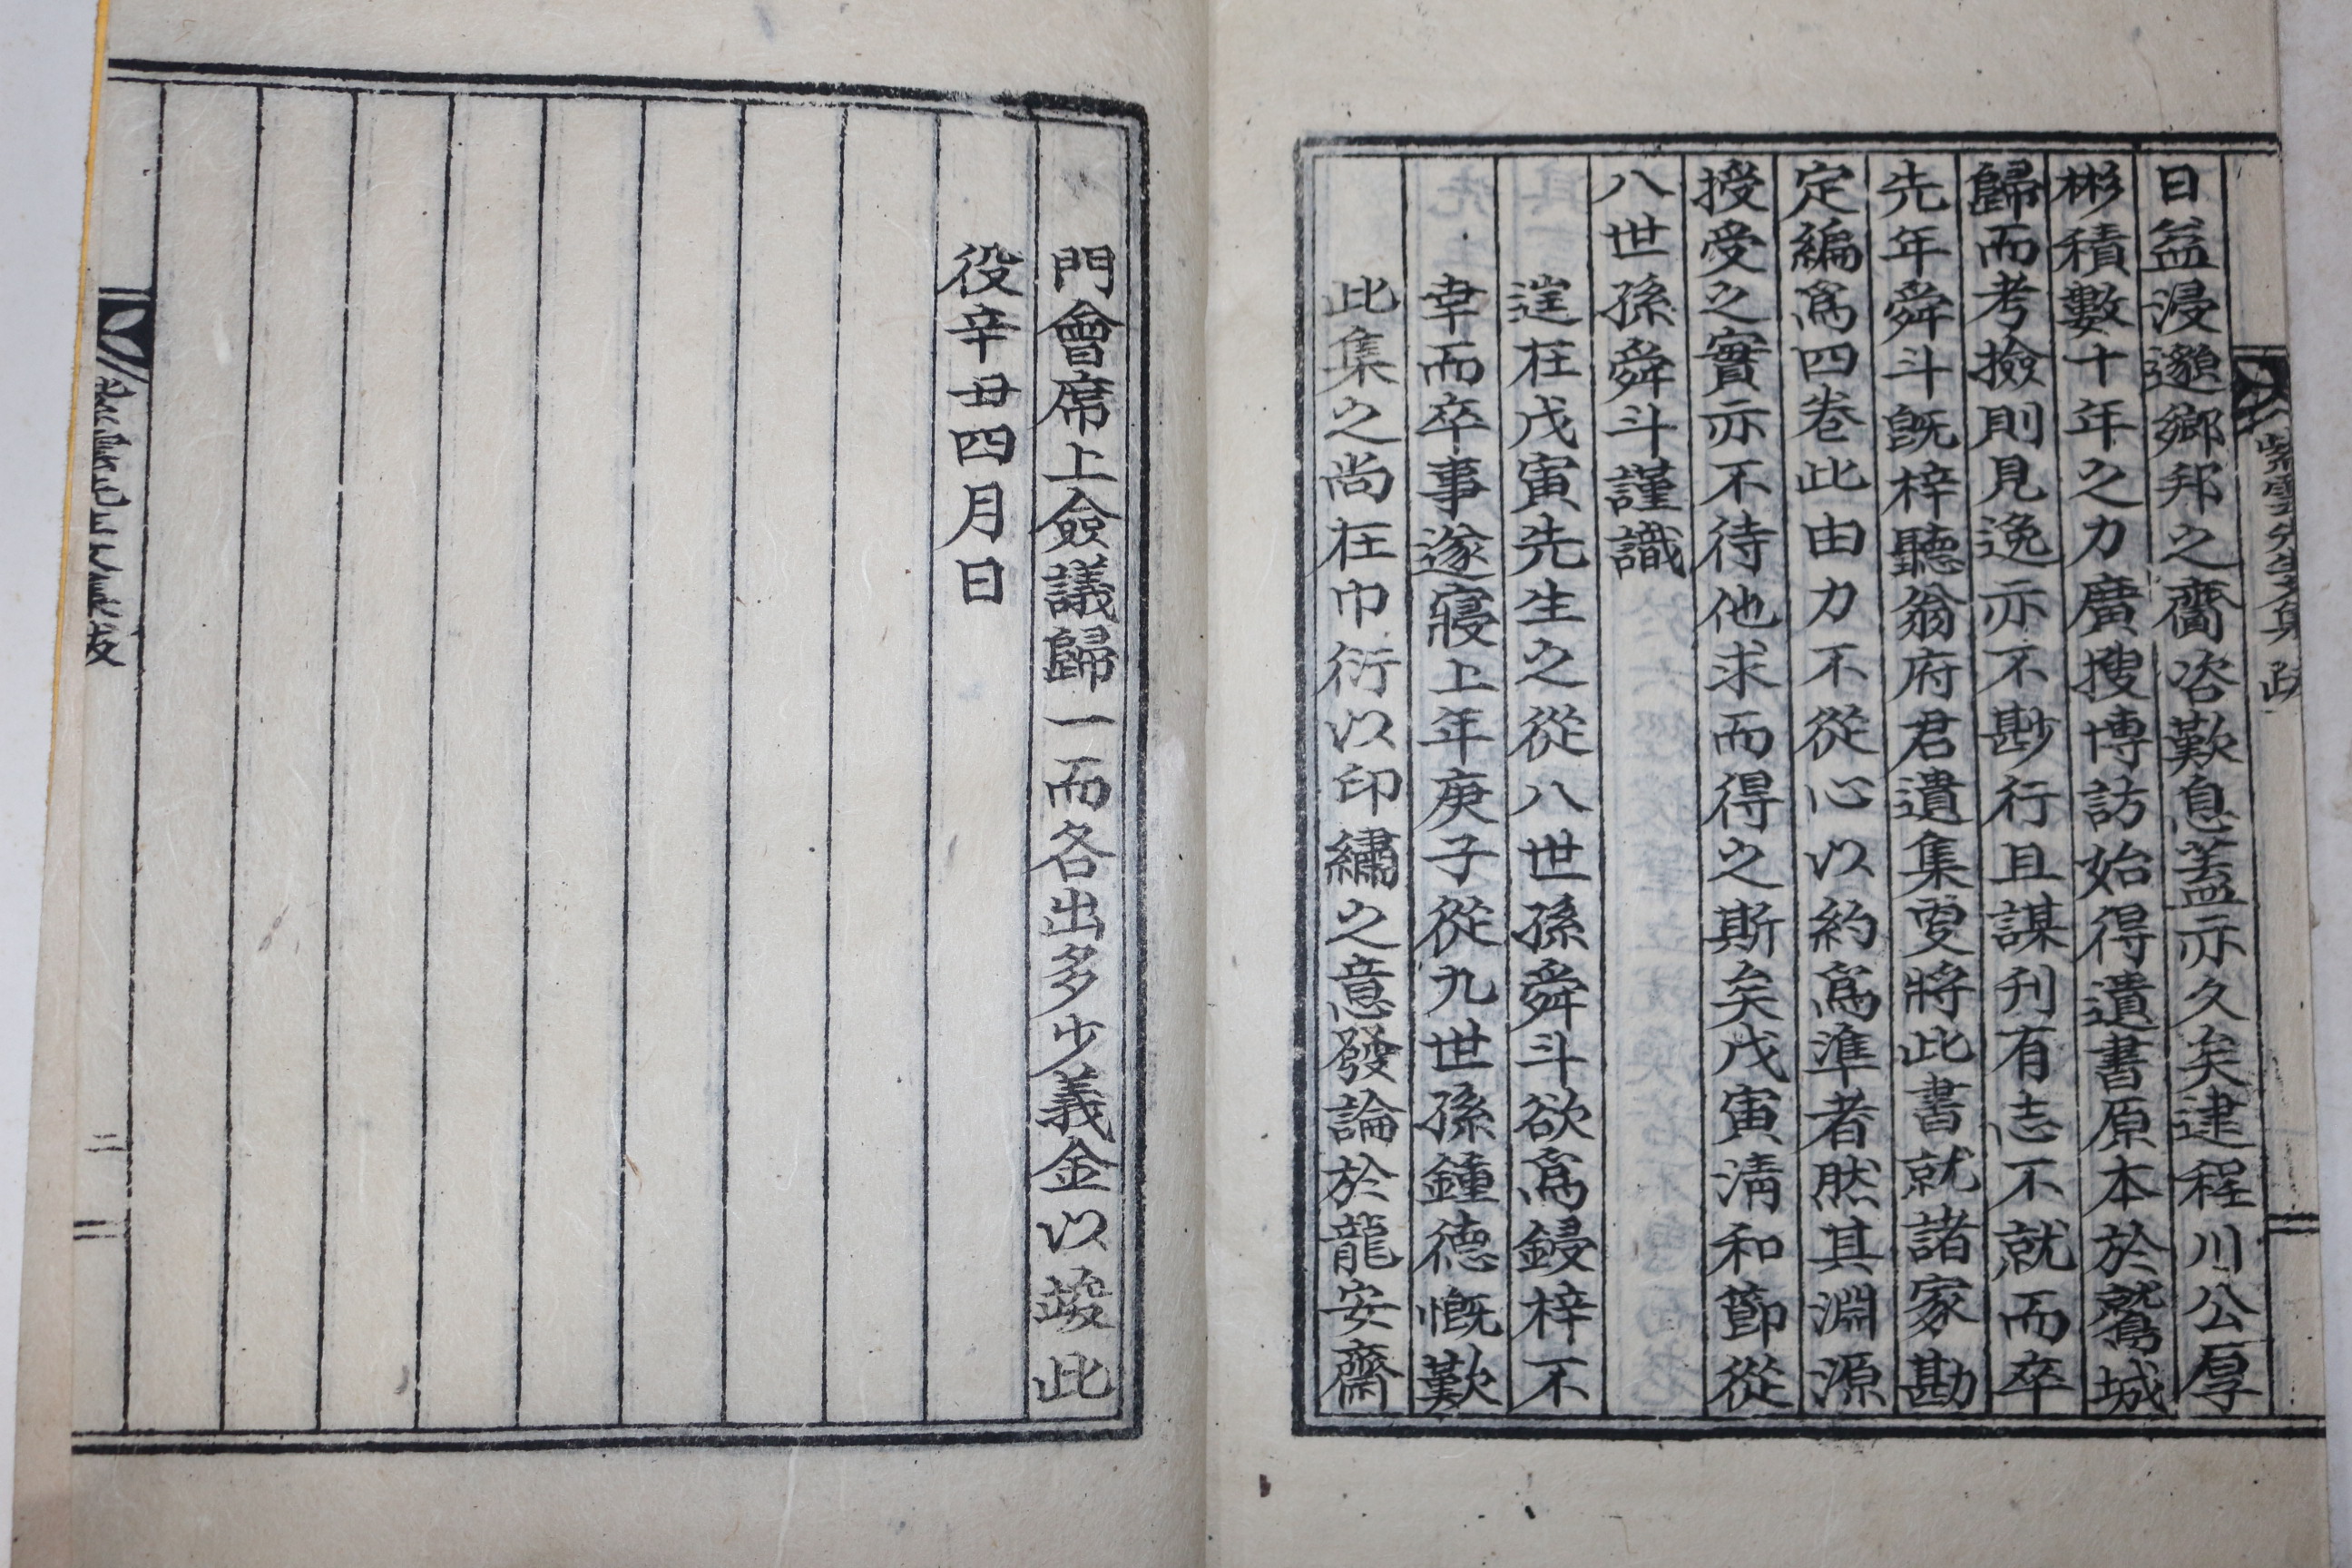 紫雲先生文集 跋
日益浸邈鄉邦之齎咨歎息盖亦久矣逮程川公厚
彬積數十年之力廣搜博訪始得遺書原本於鷲城
歸而考撿則見逸亦不尠行且謀刊有志不就而卒
先年舜斗旣梓聽翁府君遺集叓將此書就諸家勘
定編爲四卷此由力不從心以約爲準者然其淵源
授受之實亦不待他求而得之斯矣戊寅淸和節從
八世孫舜斗謹識
逞在戊寅先生之從八世孫舜斗欲爲鋟梓不
幸而卒事遂寢上年庚子從九世孫鍾德慨歎
此集之尚在巾衍以印繡之意發論於龍安齋
門會席上僉議歸一而各出多少義金以竣此
役辛丑四月日
二